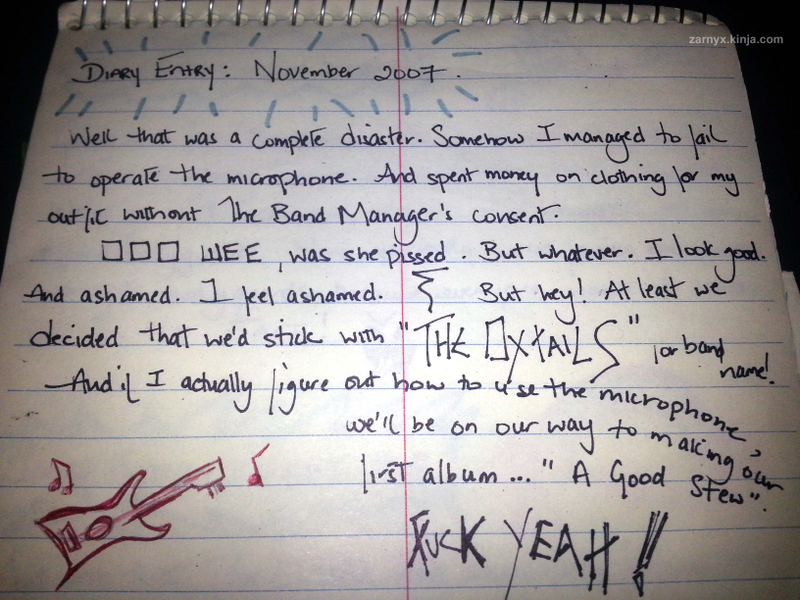 zarnyx.kinja.com
DIARY ENTRY: November 2007.
Well that was a complete disaster. Somehow I managed to fail
to operate the microphone. And spent money on clothing for my
outfit without The Band Manager's consent.
□□□ WEE, was she pissed. But whatever. I look good.
And ashamed. I feel ashamed. But hey! At least we
decided that we'd stick with "THE OXTAILS" for band
name!
And if I actually figure out how to use the microphone,
we'll be on our way to making our
first album... "A Good Stew".
FUCK YEAH!!